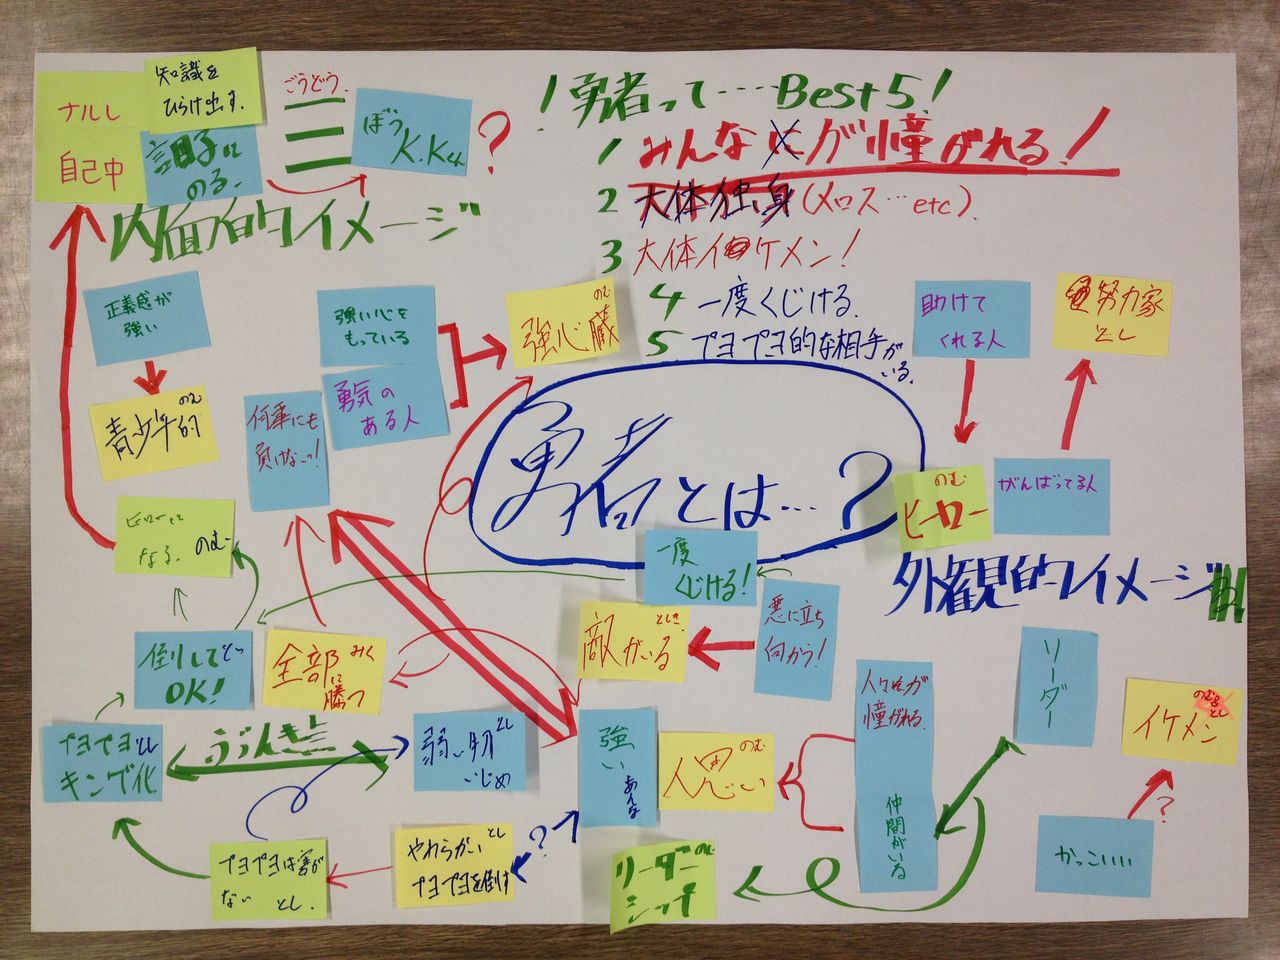 ナルし
自己中
知識を
ひらけ出す。
調子に
のる。
ごうどう。
ぼう
K.Kくん
?
!勇者って…Best5!
1 みんなにが憧がれる!
2 大体独身(メロス…etc)
3 大体イケメン!
4 一度くじける。
5 プヨプヨ的な相手が
いる。
内面的イメージ
正義感が
強い
青少年的
のむ
強い心を
もっている
勇気の
ある人
強心臓
のむ
何事にも
負けないっ!
助けて
くれる人
努力家
とし
勇者とは…?
ヒーロー
のむ
がんばってる人
外観的イメージ
ヒーローに
なる。
のむ
一度
くじける!
悪に立ち
向かう!
敵がいる
とし
倒して
OK!
とし
全部に
勝つ
みく
プヨプヨ
キング化
とし
弱い物
いじめ
とし
強い
あんな
のむ
人々が
憧がれる。
仲間がいる
リーダー
イケメン
のむ&
とし
?
かっこいい
プヨプヨは害が
ない
とし。
やわらかい
プヨプヨを倒す
とし
?
リーダー
シップ
のむ